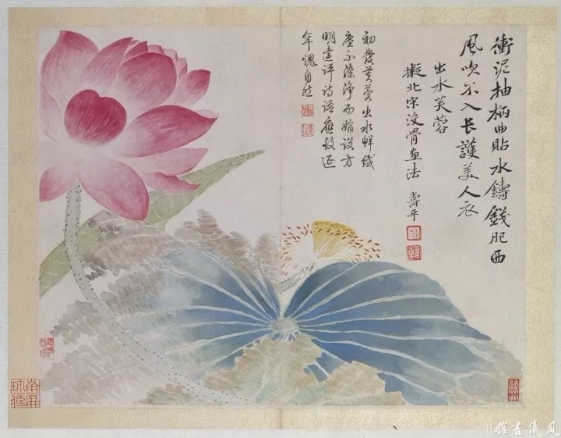 衝泥抽柄曲貼水鑄錢肥西
風吹不入長護美人衣
出水芙蓉
擬北宋沒骨畫法 壽平
初發芙蓉出水鮮纖
塵不染淨而娟設方
明遠評詩語應殺延
年愧自然